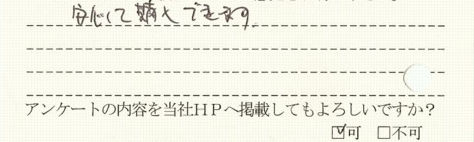 安心して購入できます。
アンケートの内容を当社HPへ掲載してもよろしいですか?
☑可 □不可